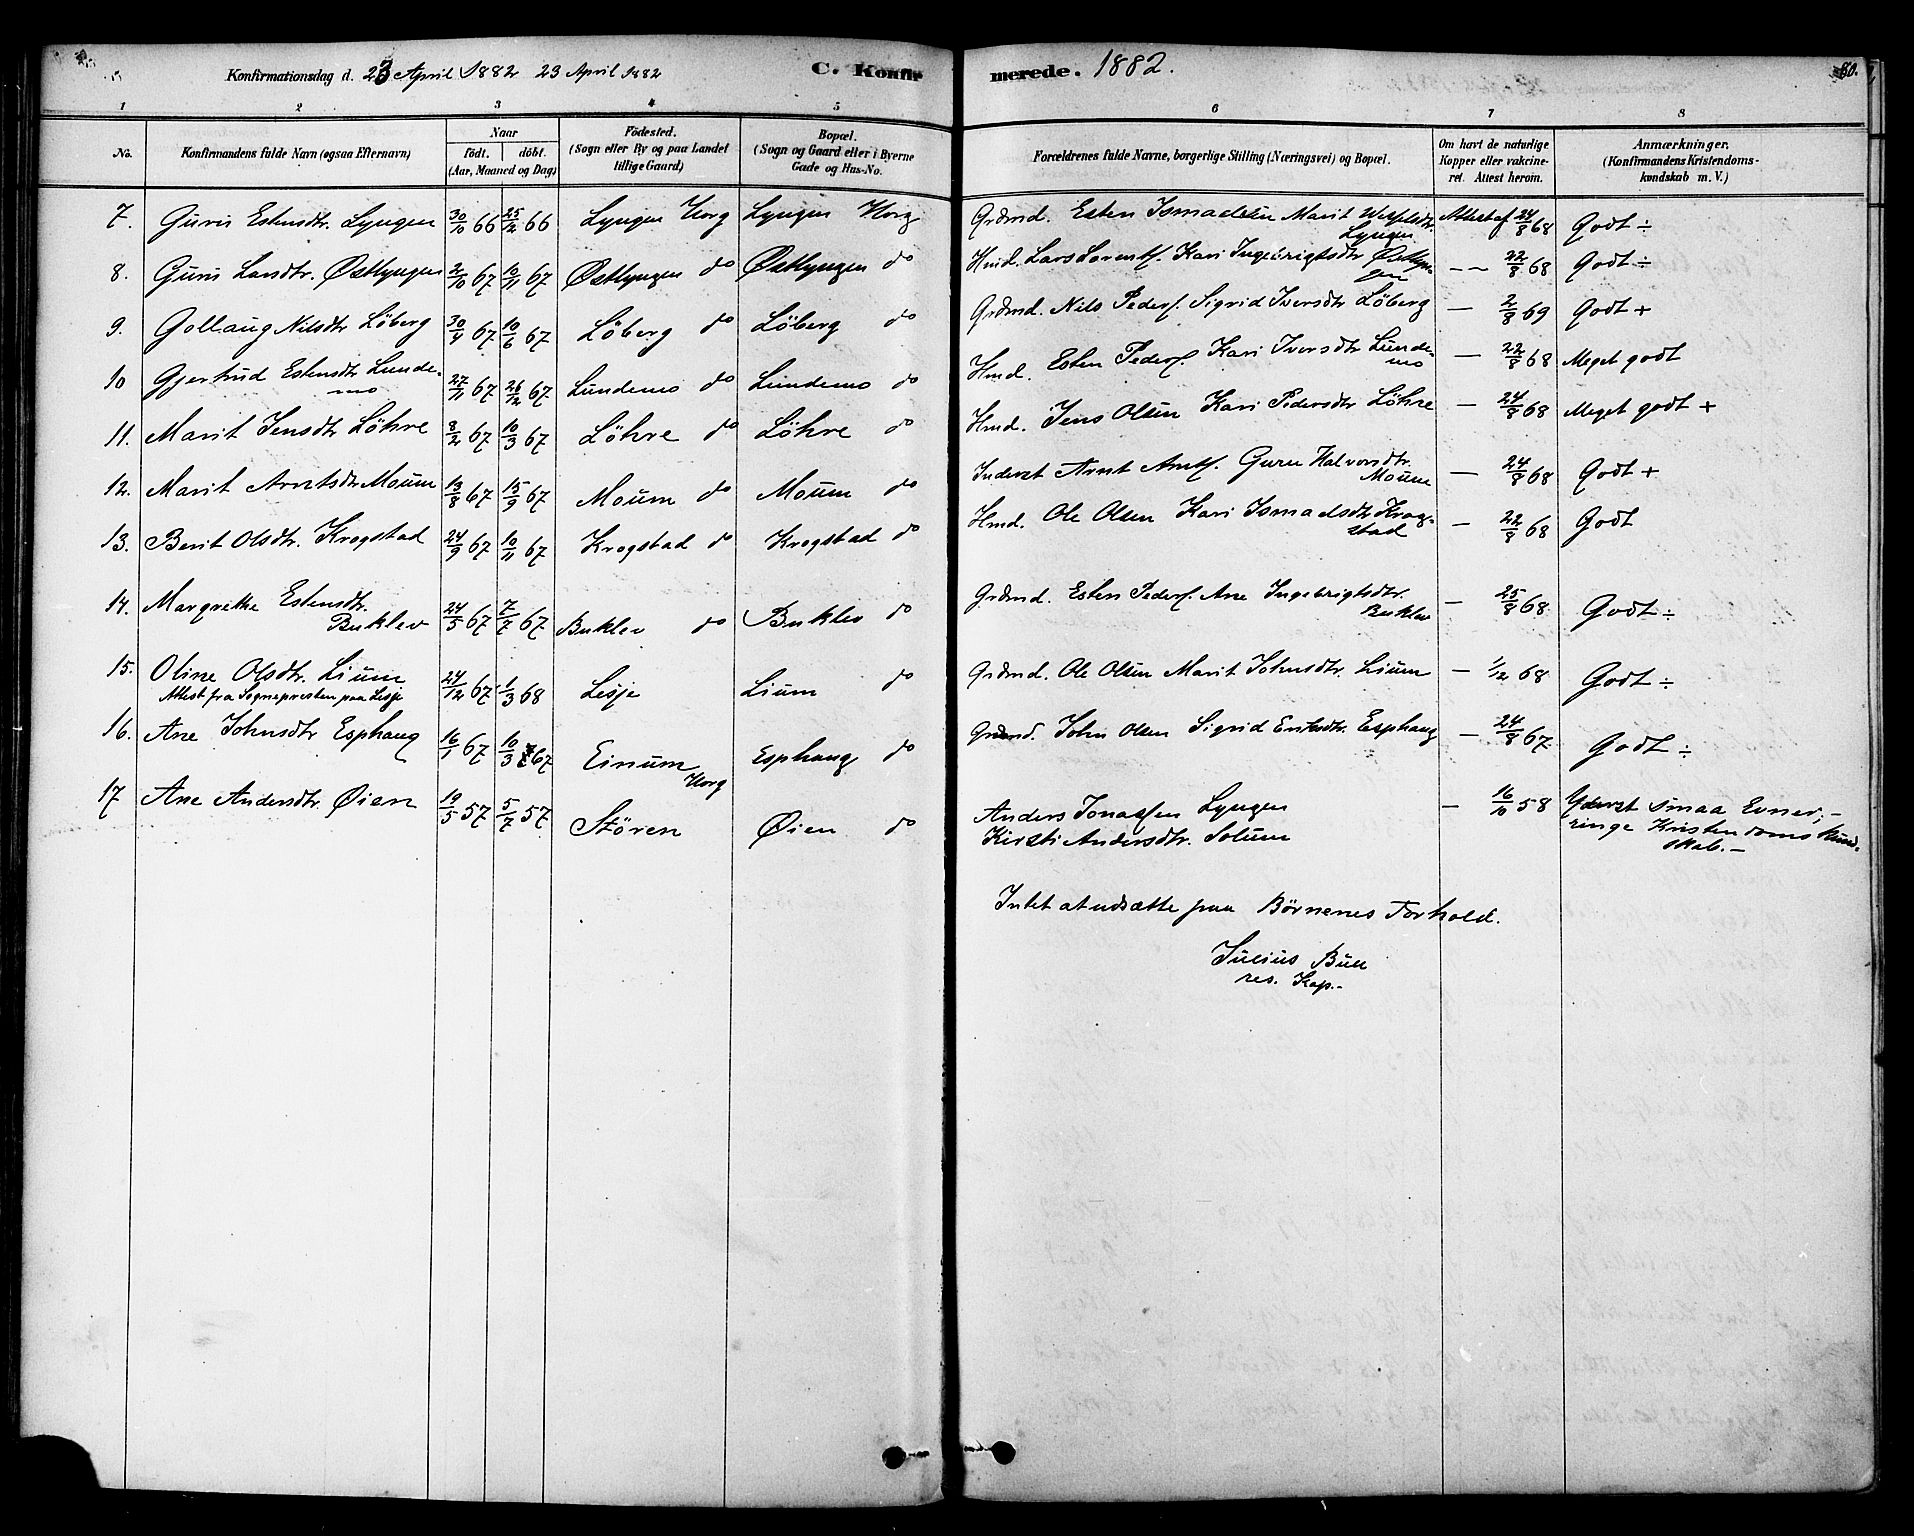 Konfirmationsdag d. 23 April 1882 23 April 1882 C. Konfirmerede. 1882. 80.
1 2 3 4 5 6 7 8
No. Konfirmandens fulde Navn (ogsaa Efternavn) Naar Födt. döbt. (Aar, Maaned og Dag) Födested. (Sogn eller By og paa Landet tillige Gaard) Bopæl. (Sogn og Gaard eller i Byerne Gade og Hus-No. Forældrenes fulde Navne, borgerlige Stilling (Næringsvei) og Bopæl. Om havt de naturlige Kopper eller vakcineret. Attest herom. Anmærkninger. (Konfirmandens Kristendomskundskab m. V.)
7. Guru Estensdtr. Lyngen 30/10 66 25/12 66 Lyngen Horg Lyngen Horg Grdmd. Esten Ismaelsen Marit Lyngen Attest af 24/8 68 Godt ÷
8. Guru Larsdtr. Østlyngen 2/10 67 10/11 67 Østlyngen do Østlyngen do Hmd. Lars Larents. Kari Ingebrigtsdtr Østlyngen — 22/8 68 Godt ÷
9. Gollaug Nilsdtr Löberg 30/4 67 10/6 67 Löberg do Löberg do Grdmd. Nils Peders. Sigrid Iversdtr Löberg — 2/8 69 Godt +
10 Gjertrud Estensdtr Lundemo 27/11 67 26/12 67 Lundemo do Lundemo do Hmd. Esten Peders. Kari Iversdtr Lundemo — 22/8 68 Meget godt
11. Marit Jensdtr Löhre 8/2 67 10/3 67 Löhre do Löhre do Hmd. Jens Olsen Kari Pedersdtr Löhre — 24/8 68 Meget godt +
12. Marit Arntsdtr Moum 13/8 67 15/9 67 Moum do Moum do Inderst Arnt Arnts. Guru Halvorsdtr. Moum — 24/8 68 Godt +
13. Berit Olsdtr. Krogstad 24/9 67 10/11 67 Krogstad do Krogstad do Hmd. Ole Olsen Kari Ismaelsdtr Krogstad — 22/8 68 Godt
14. Margrethe Estensdtr. Buklev 24/5 67 7/7 67 Buklev do Buklev do Grdmd. Esten Peders. Ane Ingebrigtsdtr. Buklev — 25/8 68 Godt ÷
15. Oline Olsdtr. Lium 24/12 67 1/3 68 Lesje Lium do Grdmd. Ole Olsen Marit Johnsdtr. Lium — 1/12 68 Godt ÷
Attest fra Sognepresten paa Lesje
16. Ane Johnsdtr Esphaug 16/1 67 10/3 67 Einum Horg Esphaug do Grdmd. John Olsen Sigrid Eriksdtr. Esphaug — 24/8 67 Godt ÷
17 Ane Andersdtr. Øien 19/5 57 5/7 57 Stören Øien do Anders Jonassen Lyngen — 16/10 58 Yderst smaa Evner, —
Kirsti Andersdtr. Solum ringe Kristendomskundskab. —
Intet at udsætte paa Börnenes Forhold.
Julius Bull
res. Kap. —